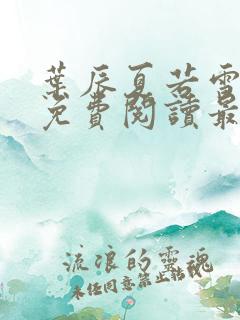 葉辰夏若雪
免費閱讀最
流浪的靈魂
未任同意禁止轉載